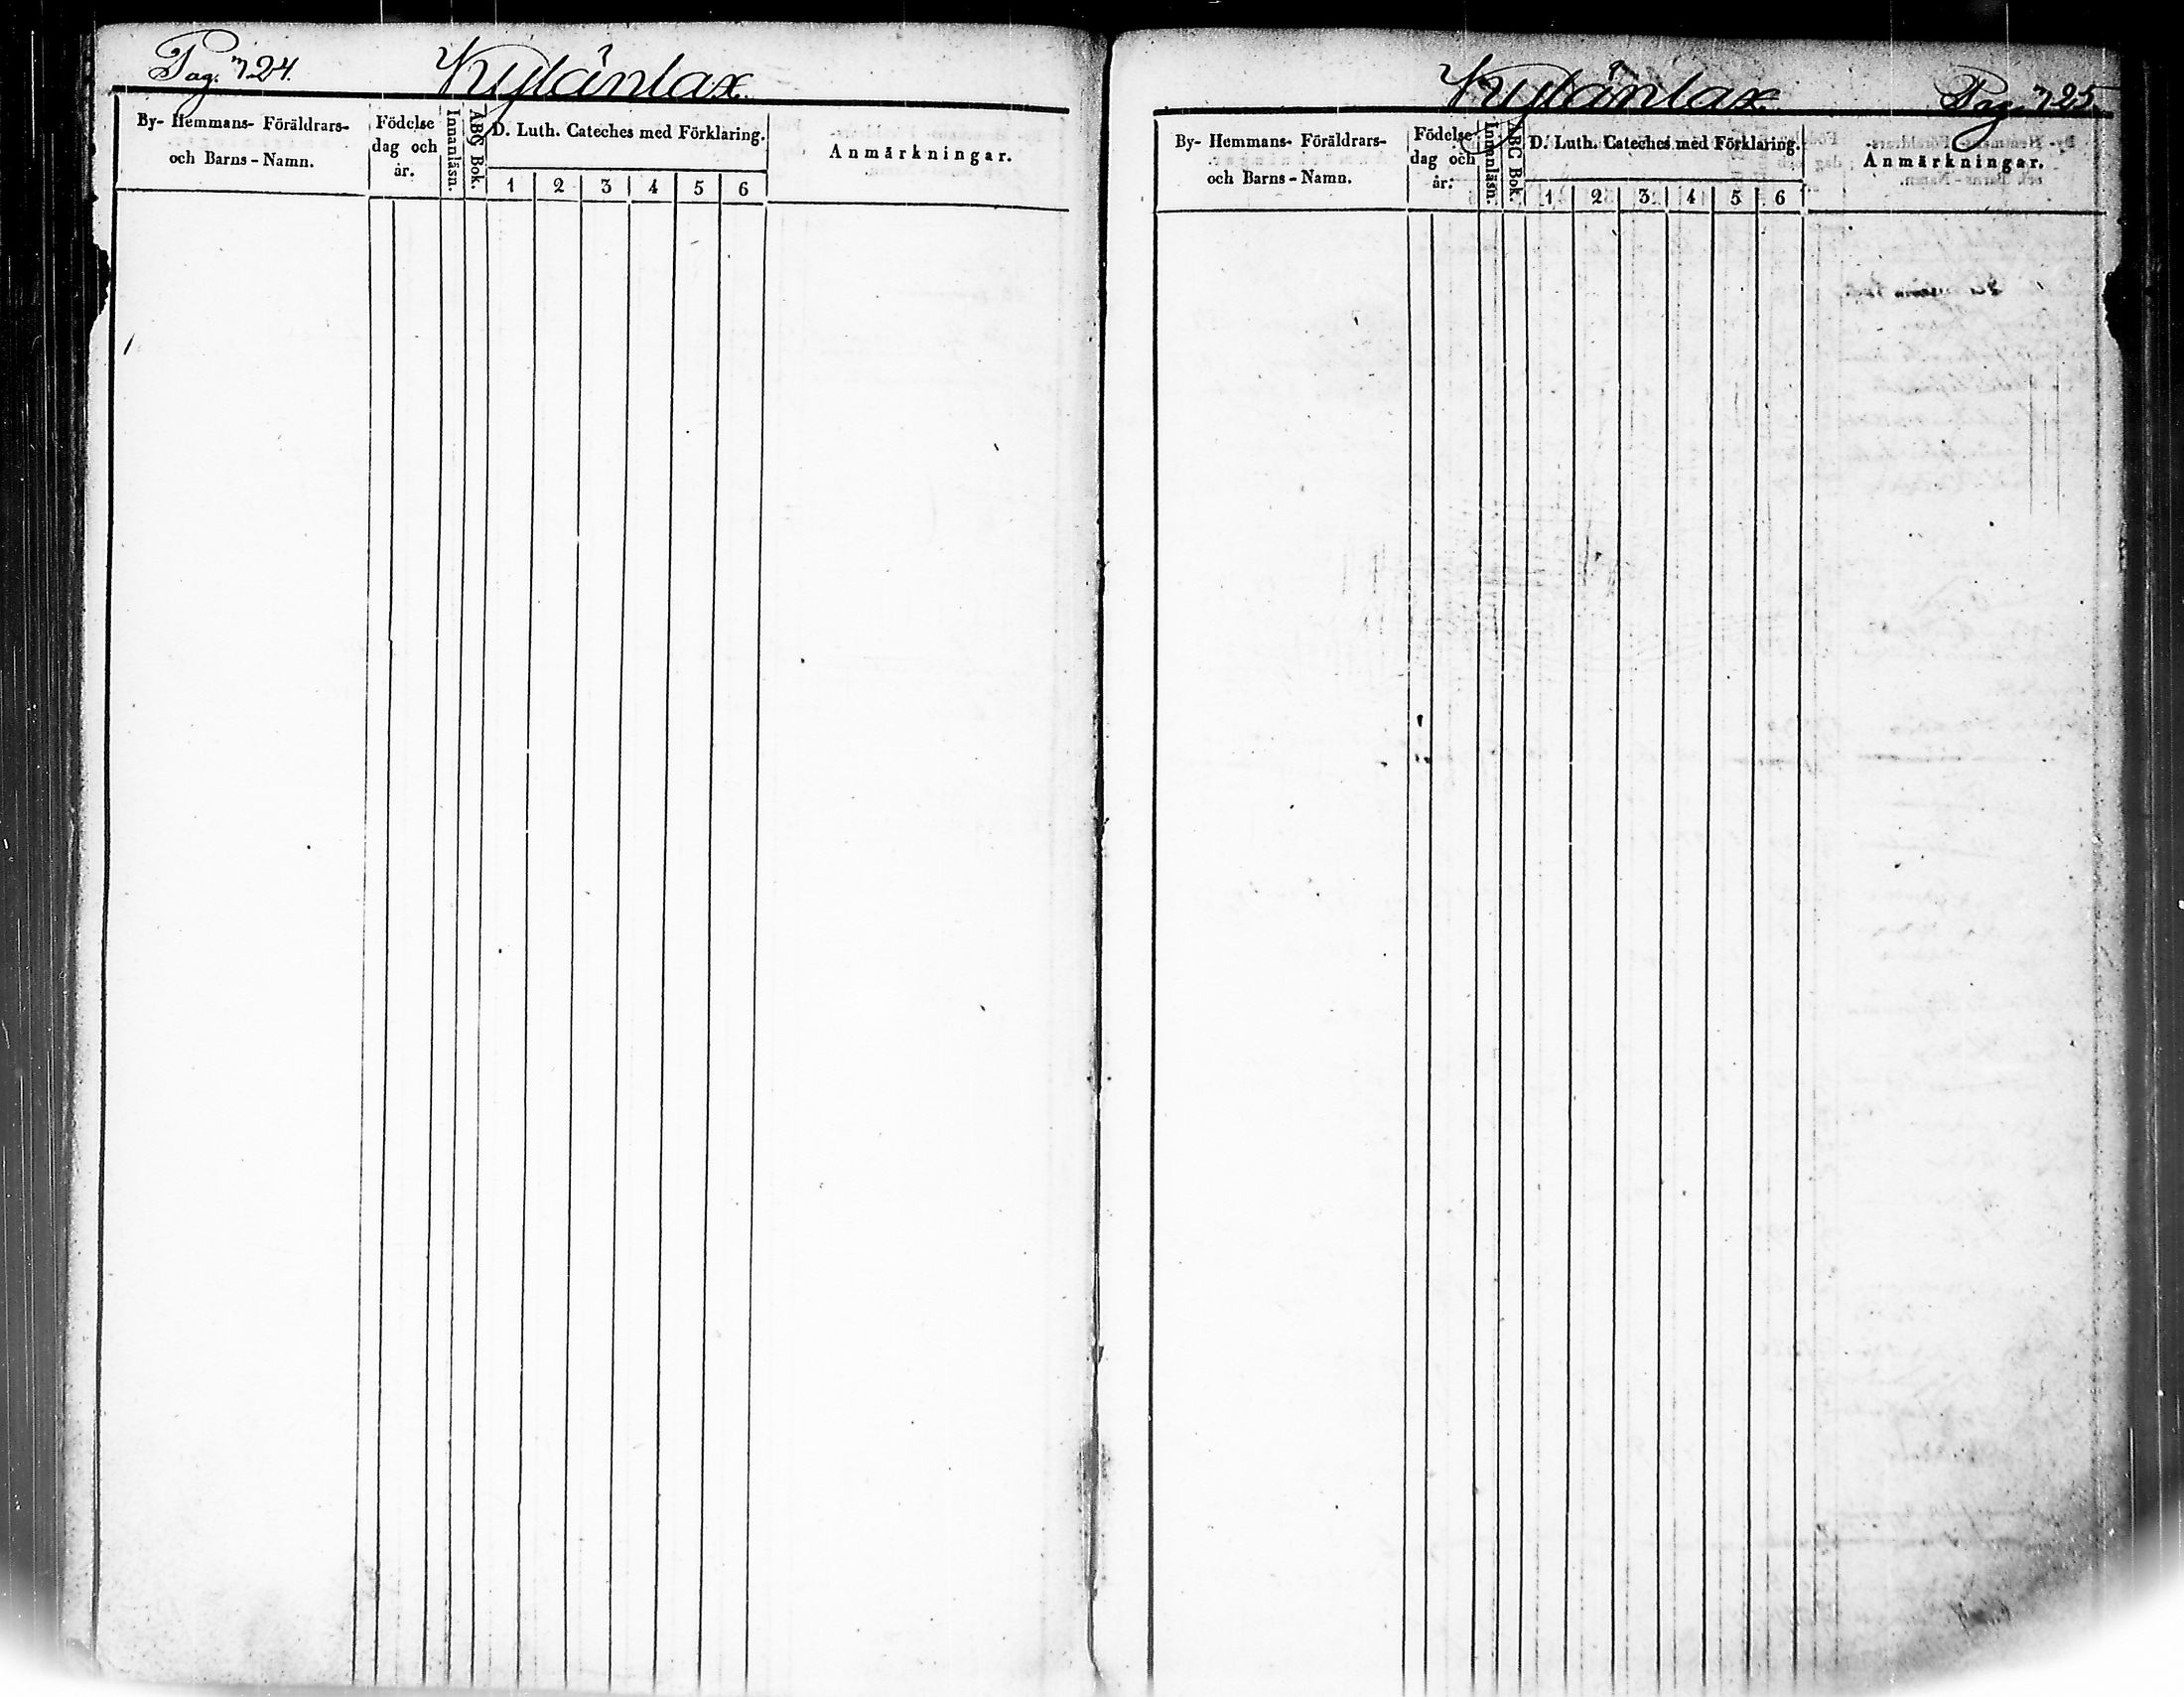 Pag. 724. Kyläntax
By- Hemmans- Föräldrars-
och Barns-Namn.
Födelse
dag och
år.
Innanläsn.
ABC Bok.
D. Luth. Cateches med Förklaring.
1 2 3 4 5 6
Anmärkningar.
Kyläntax Pag. 725
By- Hemmans- Föräldrars-
och Barns-Namn.
Födelse
dag och
år.
Innanläsn.
ABC Bok.
D. Luth. Cateches med Förklaring.
1 2 3 4 5 6
Anmärkningar.